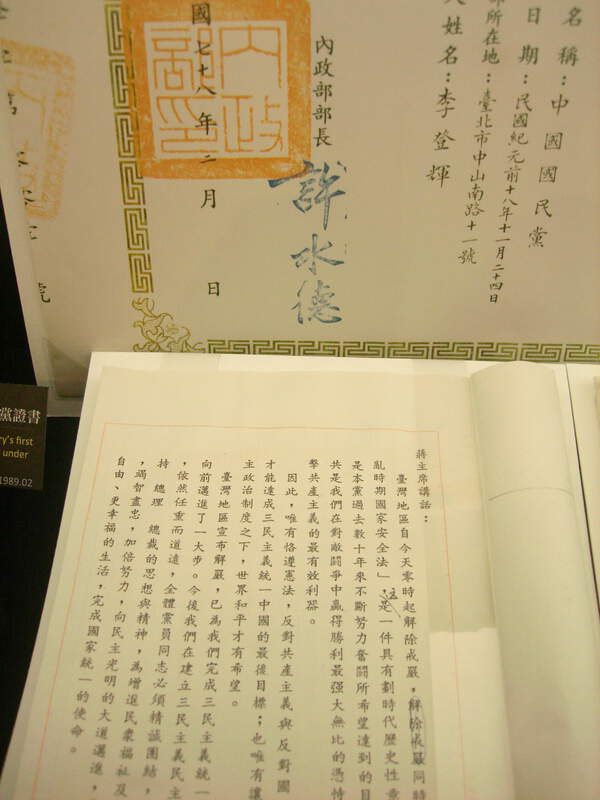 名稱：中國國民黨
日期：民國紀元前十八年十一月二十四日
部所在地：臺北市中山南路十一號
人姓名：李登輝
內政部部長
許水德
內政部印
國七十八年二月　日
號
黨證書
ry's first
under
1989.02
蔣主席講話：
臺灣地區自今天零時起解除戒嚴，解除戒嚴同時
亂時期國家安全法」，這是一件具有劃時代歷史性意
是本黨過去數十年來不斷努力奮鬪所希望達到的目
共是我們在對敵鬪爭中贏得勝利最强大無比的憑恃
擊共產主義的最有效利器。
因此，唯有恪遵憲法，反對共產主義與反對國
才能達成三民主義統一中國的最後目標；也唯有讓
主政治制度之下，世界和平才有希望。
臺灣地區宣布解嚴，已為我們完成三民主義統一
向前邁進了一大步。今後我們在建立三民主義民主
，依然任重而道遠，全體黨員同志必須精誠團結，
持　總理　總裁的思想與精神，為增進民衆福祉及
，竭智盡忠，加倍努力，向民主光明的大道邁進，
自由、更幸福的生活，完成國家統一的使命。